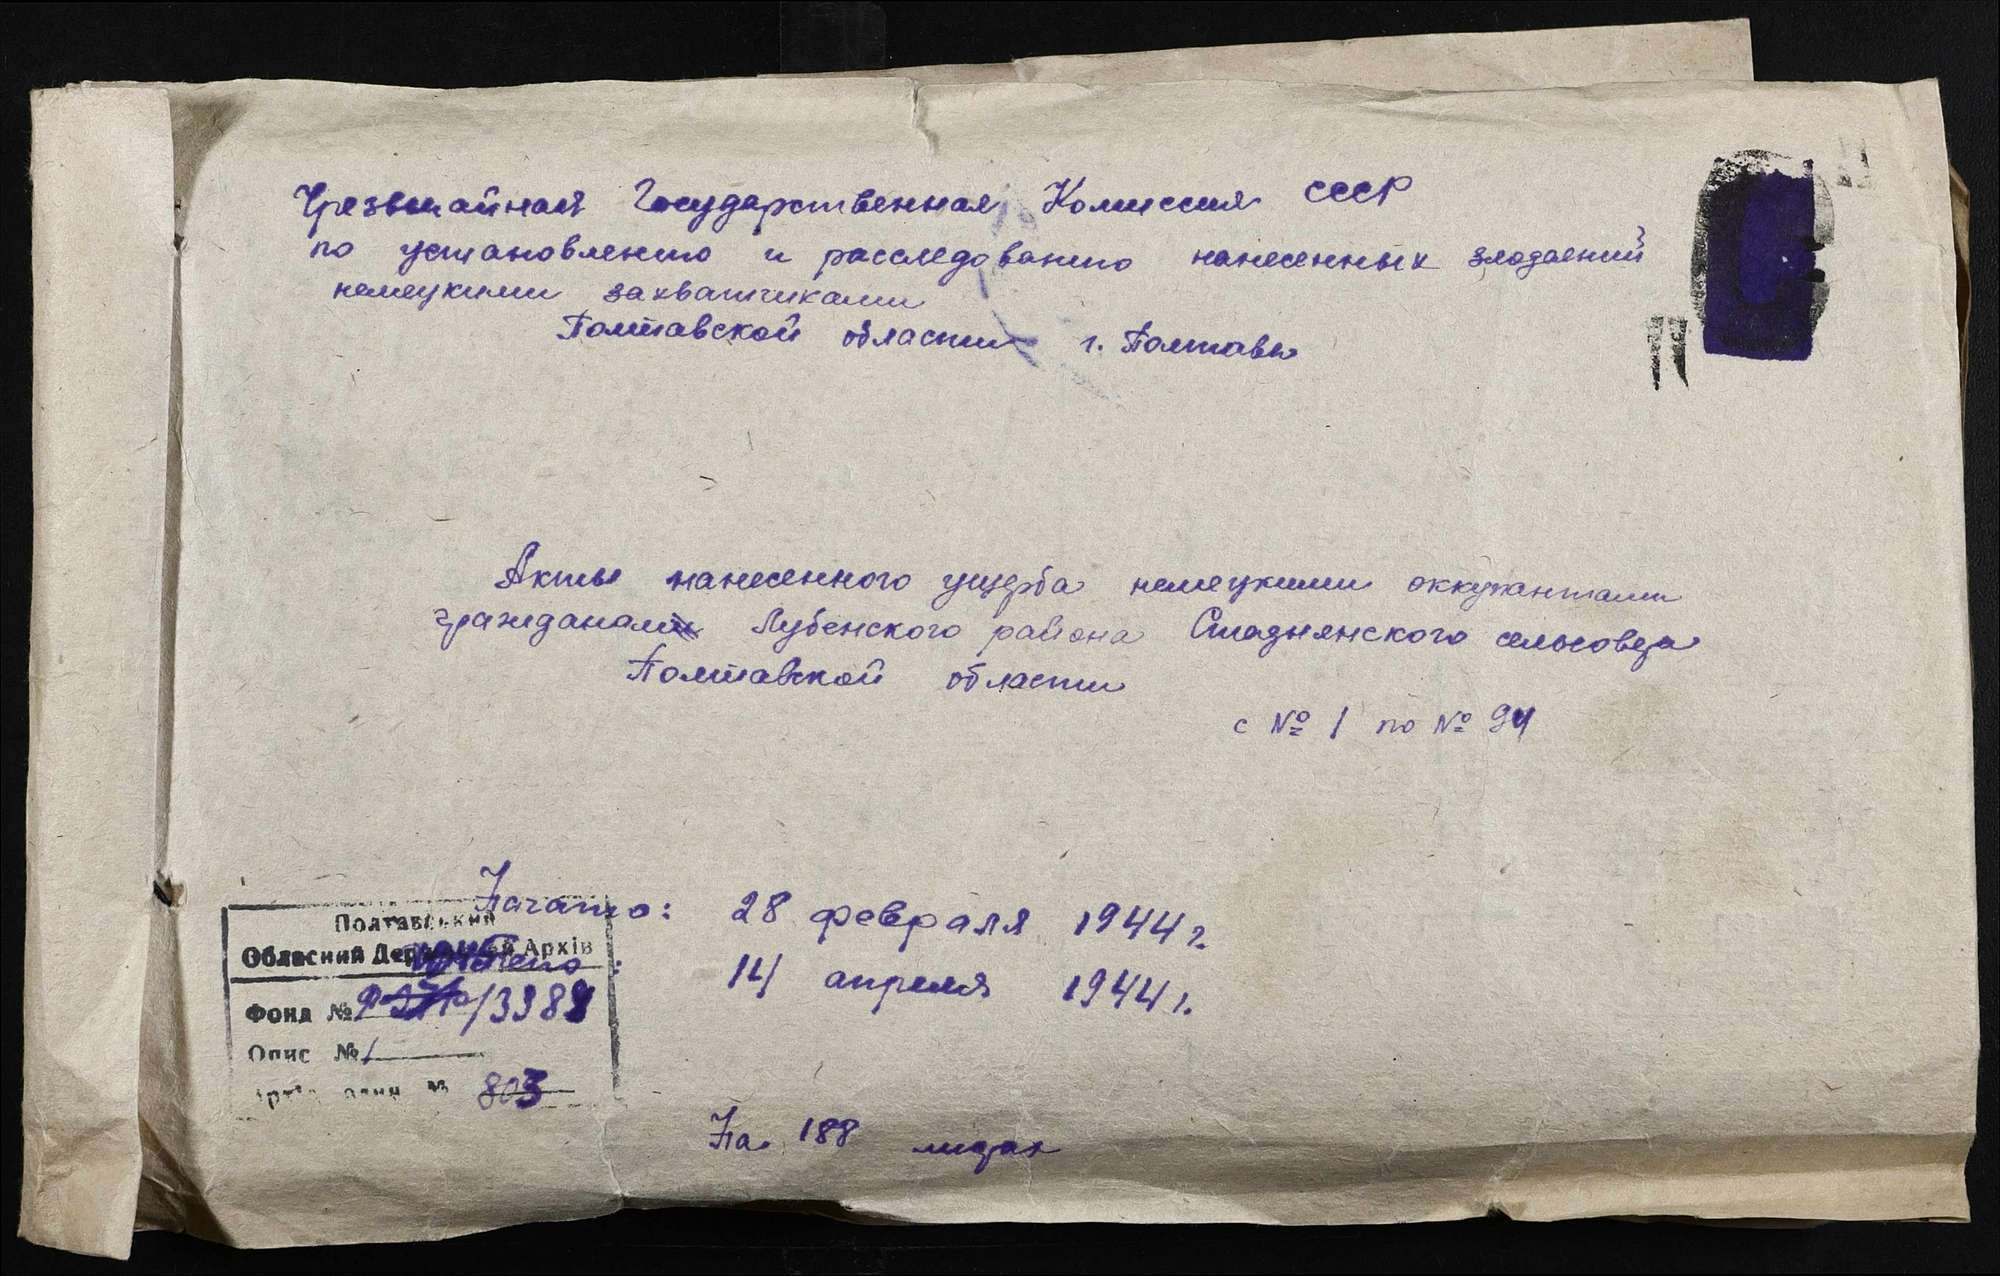 Чрезвычайная Государственная Комиссия СССР
по установлению и расследованию нанесенных злодаений
немецкими захватчиками
Полтавской области г. Полтавы
Акты нанесенного ущерба немецкими оккупантами
гражданам Лубенского района Стаднянского сельсовета
Полтавской области
с № 1 по № 94
Начато: 28 февраля 1944 г.
14 апреля 1944 г.
Полтавський
Обласний Державний Архів
Фонд № /3388
Опис № 1
803
На 188 листах